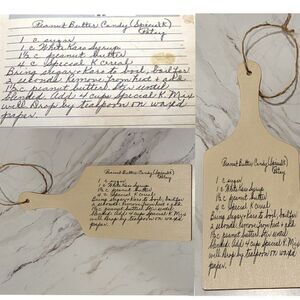 Peanut Butter Candy (Special K)
1 c sugar
1 c White Karo Syrup
1½ c peanut butter
4 c Special K cereal
Bring sugar + Karo to boil, boil for
seconds. Remove from heat & add
1½ c peanut butter. Stir until
blended. Add 4 cup Special K. Mix
well. Drop by teaspoon on waxed
paper.
Peanut Butter Candy (Special K)
1 c sugar
1 c White Karo Syrup
1½ c peanut butter
4 c Special K cereal
Bring sugar + Karo to boil, boil for
seconds. Remove from heat & add
1½ c peanut butter. Stir until
blended. Add 4 cup Special K. Mix
well. Drop by teaspoon on waxed
paper.
Peanut Butter Candy (Special K)
1 c sugar
1 c White Karo Syrup
1½ c peanut butter
4 c Special K cereal
Bring sugar + Karo to boil, boil for
seconds. Remove from heat & add
1½ c peanut butter. Stir until
blended. Add 4 cup Special K. Mix
well. Drop by teaspoon on waxed
paper.